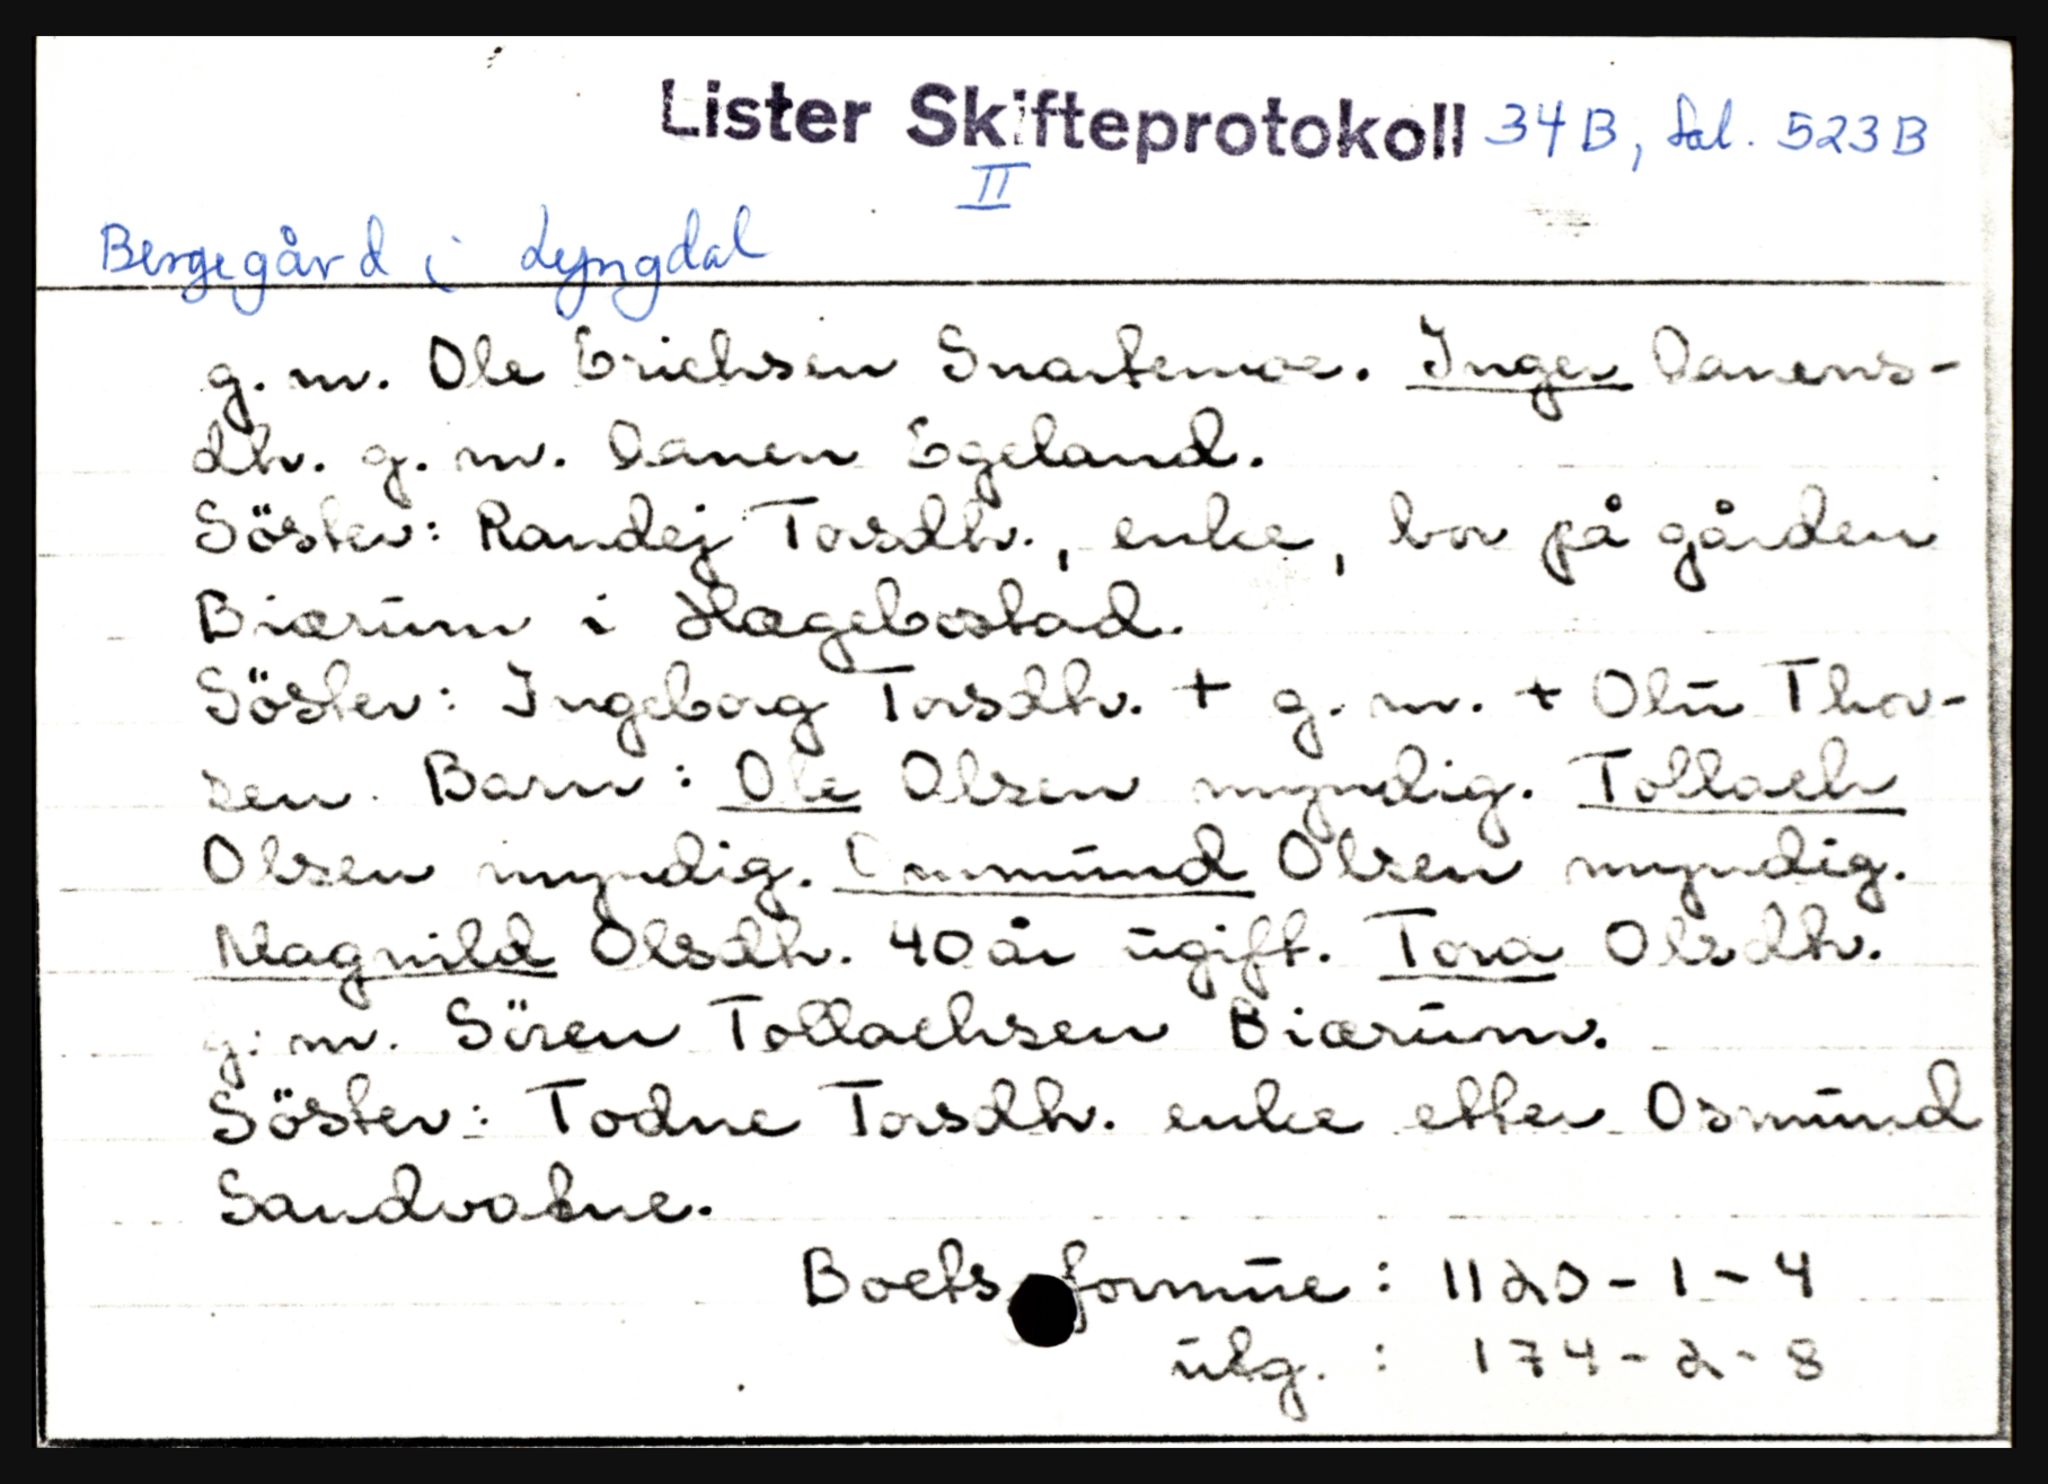 Lister Skifteprotokoll 34B, fol. 523B
II
Bergegård i Lyngdal
g. m. Ole Erichsen Snartemoe. Inger Danens-
dtr. g. m. Danen Egeland.
Söster: Randej Torsdtr., enke, bor på gården
Biærum i Hægebostad.
Söster: Ingeborg Torsdtr. + g. m. + Olu Thor-
sen. Barn: Ole Olsen myndig. Tollach
Olsen myndig. Ommund Olsen myndig.
Magnild Olsdtr. 40 år ugift. Tora Olsdtr.
g. m. Sören Tollachsen Biærum.
Söster: Todne Torsdtr. enke etter Osmund
Sandvatne.
Boets formue: 1120-1-4
utg. : 174-2-8